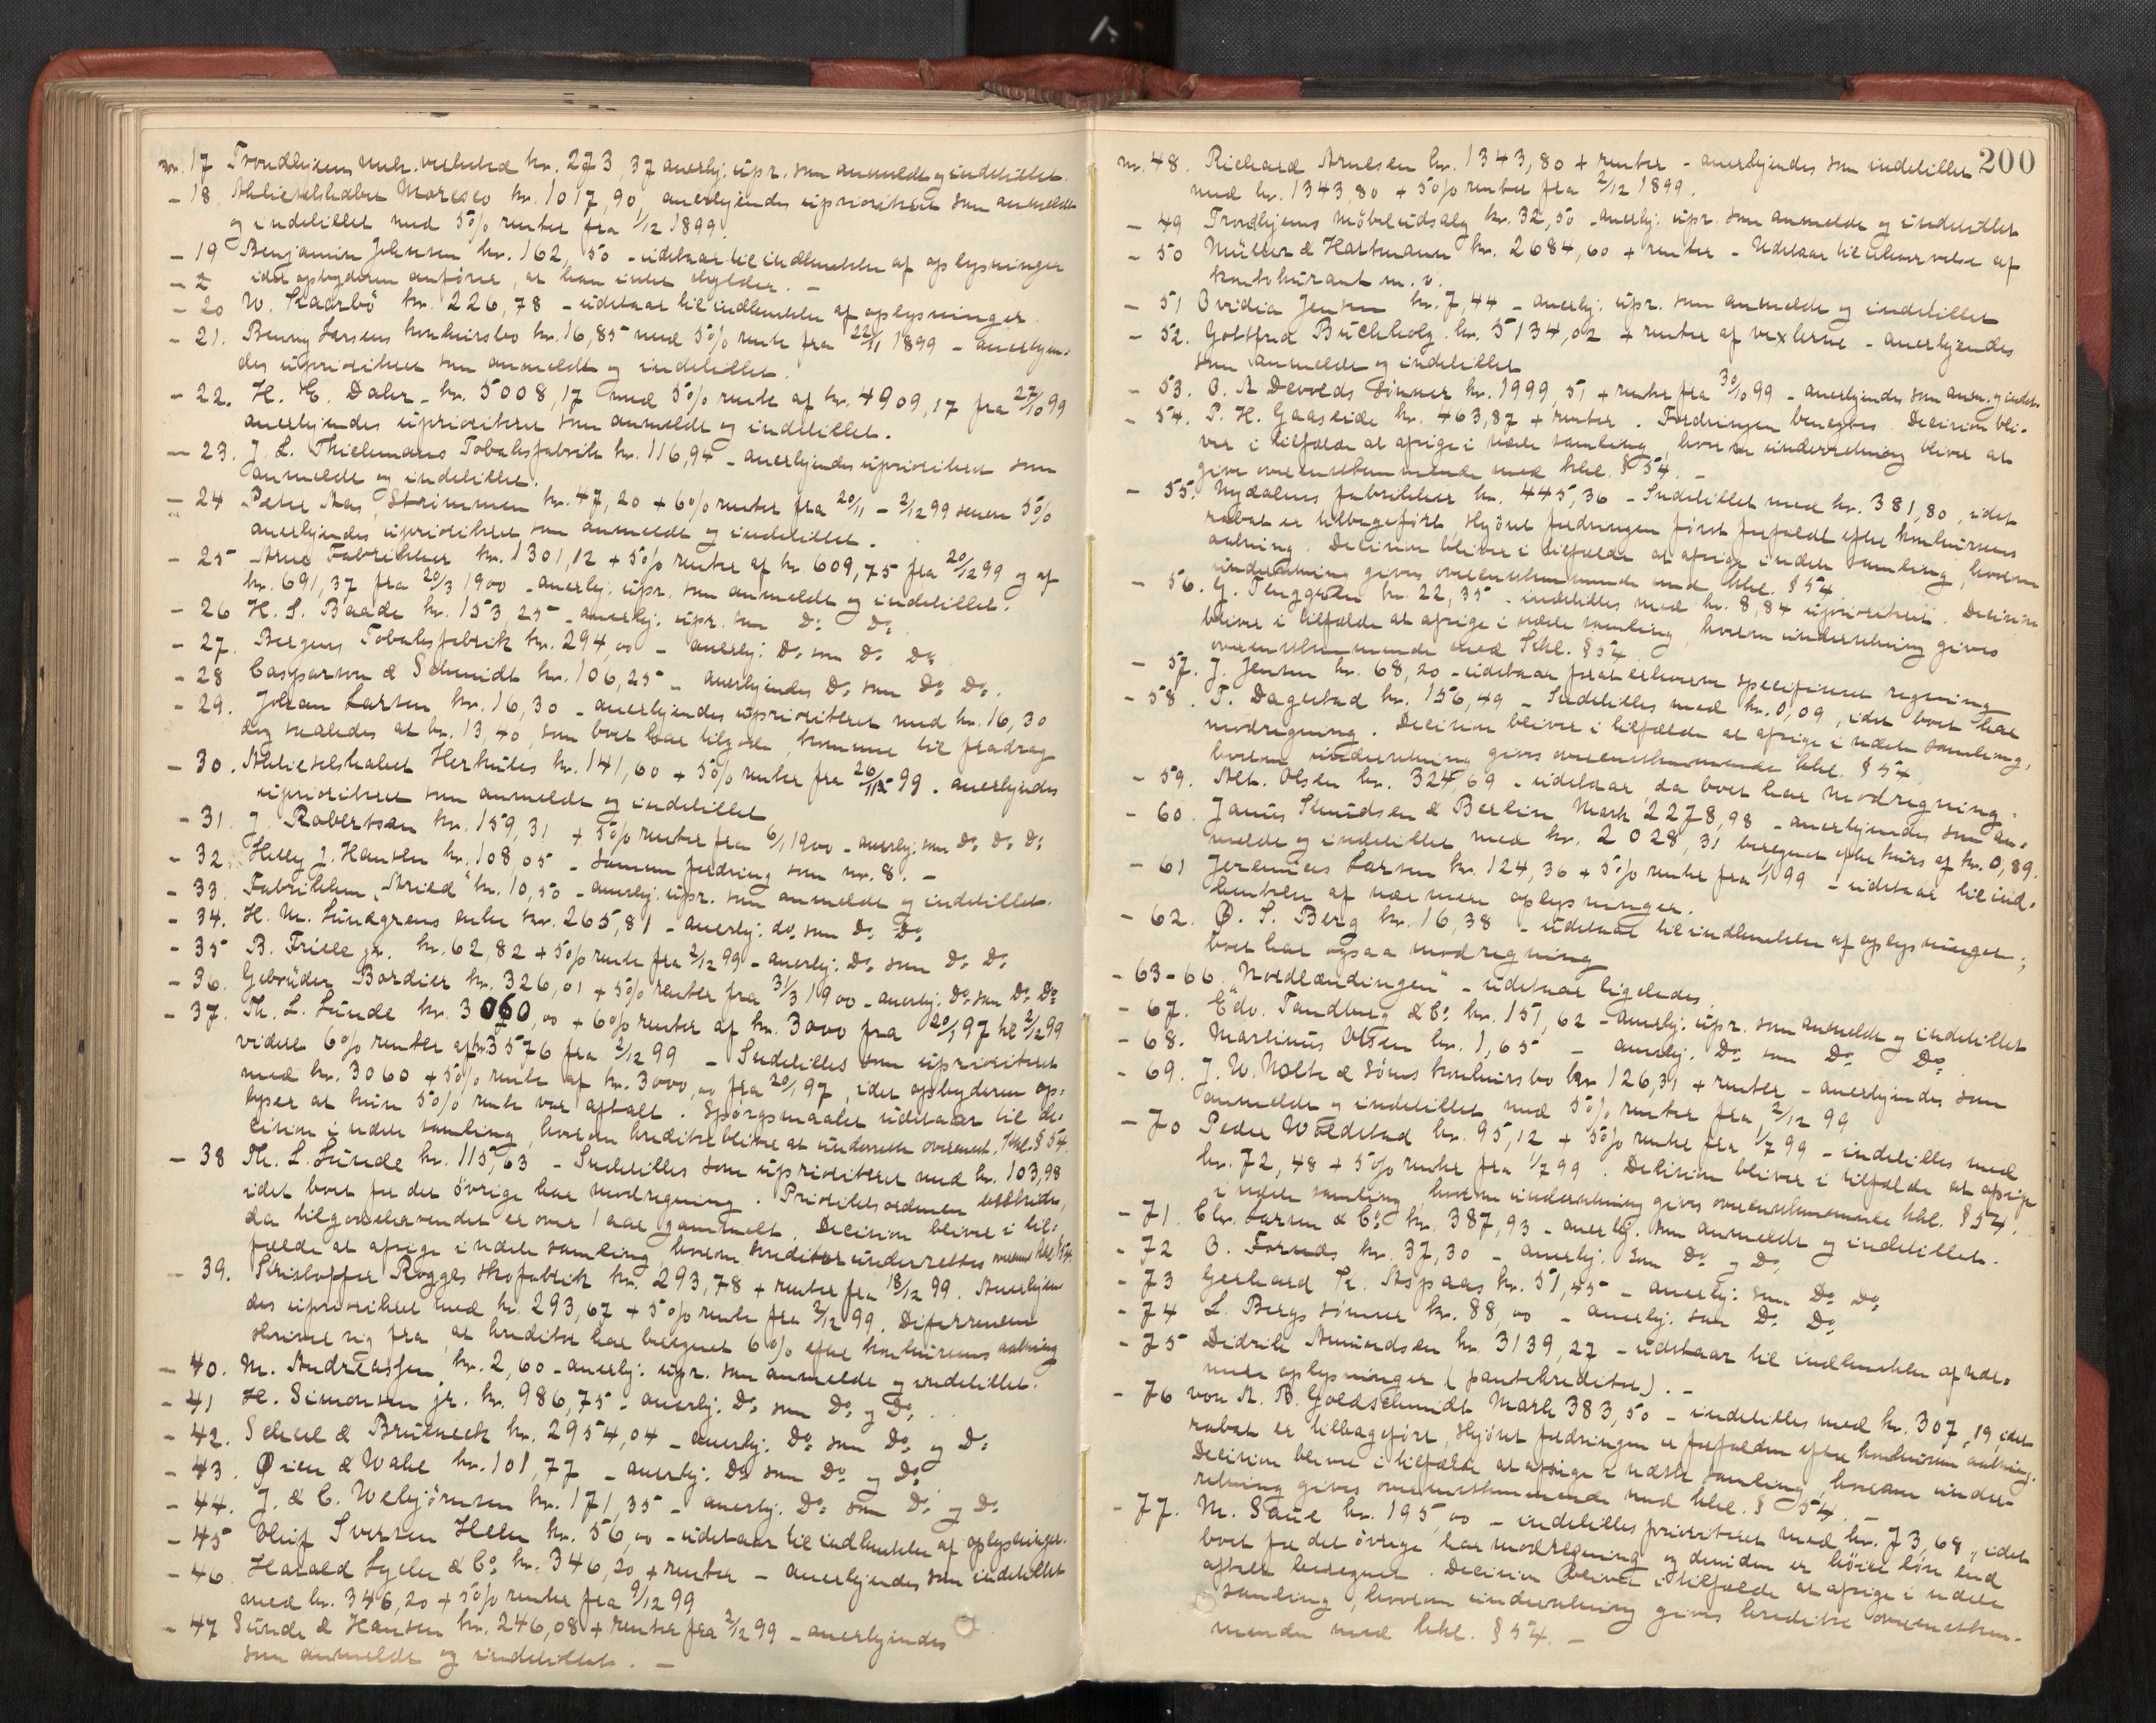 nr. 17 Trondhjems mek. verksted kr. 273,37 anerkj. upr. som anmeldt og indstillet.
- 18. Aktieselskabet Moresco kr. 1017,90, anerkjendes uprioriteret som anmeldt
og indstillet med 5% renter fra 2/12 1899.
- 19 Benjamin Johnsen kr. 162,50 - udstaar til indhentelse af oplysninger
idet opbyderen anfører, at han intet skylder. -
- 20 W. Skarbö kr. 226,78 - udstaar til indhentelse af oplysninger.
- 21. Benny Larsens konkursbo kr. 16,85 med 5% rente fra 22/11 1899 - anerkjen-
des uprioriteret som anmeldt og indstillet.
- 22. H. E. Dahr - kr. 5008,17 med 5% rente af kr. 4909,17 fra 27/10 99
anerkjendes uprioriteret som anmeldt og indstillet.
- 23. J. L. Thielmanns Tobaksfabrik kr. 116,94 - anerkjendes uprioriteret som
anmeldt og indstillet.
- 24 Peter Aas, Strömmen kr. 47,20 + 6% renter fra 20/11 - 2/12 99 senere 5%
anerkjendes uprioriteret som anmeldt og indstillet.
- 25 Arne Fabrikker kr. 1301,12 + 5% renter af kr. 609,75 fra 20/12 99 og af
kr. 691,37 fra 20/3 1900 - anerkj. upr. som anmeldt og indstillet.
- 26 H. S. Baade kr. 153,25 - anerkj. upr. som Do Do
- 27. Bergens Tobaksfabrik kr. 294,00 - anerkj. Do som Do Do
- 28 Casparson & Schmidt kr. 106,25 - anerkjendes Do som Do Do.
- 29. Johan Larsen kr. 16,30 - anerkjendes uprioriteret med kr. 16,30
dog saaledes at kr. 13,40, som boet har tilgode, kommer til fradrag
- 30. Aktieselskabet Herkules kr. 141,60 + 5% renter fra 26/11 99. anerkjendes
uprioriteret som anmeldt og indstillet
- 31. J. Robertson kr. 159,31 + 5% renter fra 6/1 1900 - anerkj. som Do Do Do
- 32. Helly J. Hansen kr. 108 05 - Samme fordring som nr. 8. -
- 33. Fabrikken "Arild" kr. 10,50 - anerkj. upr. som anmeldt og indstillet.
- 34. H. M. Lundgrens enke kr. 265,81 - anerkj. do som Do Do
- 35 B. Friele jr. kr. 62,82 + 5% rente fra 2/12 99 - anerkj. Do som Do Do
- 36. Gebrüder Bordier kr. 326,01 + 5% renter fra 31/3 1900 - anerkj. Do som Do Do
- 37. Th. L. Sunde kr. 3060,00 + 6% renter af kr. 3000 fra 20/1 97 til 2/12 99
videre 6% renter af kr 3576 fra 2/12 99 - Indstilles som uprioriteret
med kr. 3060 + 5% rente af kr. 3000,00 fra 20/1 97, idet opbyderen op-
lyser at kun 5% rente var aftalt. Spørgsmaalet udstaar til de-
cision i næste samling, hvorom kreditor bliver at underrette overenst. kkl. § 54.
- 38 Th. L. Sunde kr. 115,63 - Indstilles som uprioriteret med kr. 103,98
idet boet for det övrige har modregning. Prioritetsordenen bestrides,
da tilgodehavendet er over 1 aar gammelt. Decision bliver i til-
fælde at afsige i næste samling, hvorom kreditor underrettes overenst kkl. § 54.
- 39. Kristoffer Rogges skofabrik kr. 293,78 + renter fra 18/12 99. Anerkjen-
des uprioriteret med kr. 293,67 + 5% rente fra 2/12 99. Differensen
skriver sig fra, at kreditor har beregnet 6% efter konkursens aabning
- 40. M. Andreassen kr. 2,60 - anerkj. upr. som anmeldt og indstillet.
- 41 H. Simonsen jr. kr. 986,75 - anerkj. Do som Do og Do.
- 42. Scheel & Brüneck kr. 2954,04 - anerkj. Do som Do og Do
- 43. Øien & Wahl kr. 101,77 - anerkj. Do som Do og Do
- 44. J. & C. Webjörnsen kr. 171,35 - anerkj. Do som Do og Do
- 45 Oluf Iversen Helen kr. 56,00 - udstaar til indhentelse af oplysninger.
- 46 Harald Lyche & Co kr. 346,20 + renter - anerkjendes som indstillet
med kr. 346,20 + 5% renter fra 2/12 99
- 47 Sunde & Hansen kr. 246,08 + renter fra 2/12 99 - anerkjendes
som anmeldt og indstillet. -
200
nr. 48. Richard Arnesen kr. 1343,80 + renter - anerkjendes som indstillet
med kr. 1343,80 + 5% renter fra 2/12 1899.
- 49 Trondhjems möbeludsalg kr. 32,50 - anerkj. upr. som anmeldt og indstillet
- 50 Müller & Hartmann kr. 2684,60 + renter - Udstaar til erhvervelse af
kontokurant m. v.
- 51 Ovidia Jensen kr. 7,44 - anerkj. upr. som anmeldt og indstillet
- 52. Gottfred Buchholz kr. 5134,02 + renter af vexlerne - anerkjendes
som anmeldt og indstillet
- 53. O. A Devolds Sönner kr. 1999,51 + renter fra 30/10 99 - anerkjendes som anm. og indst.
- 54. P. H. Gaaseide kr. 463,87 + renter. Fordringen benegtes. Decision bli-
ver i tilfælde at afsige i næste samling, hvorom underretning bliver at
give overensstemmende med kkl. § 54. -
- 55. Nydalens fabrikker kr. 445,36 - Indstillet med kr. 381,80, idet
rabat er tilbageført skjönt fordringen först forfaldt efter konkursens
aabning. Decision bliver i tilfælde at afsige i næste samling, hvorom
underretning gives overensstemmende med kkl. § 54.
- 56. G. Tenggren kr. 22,35 - indstilles med kr. 8,84 uprioriteret. Decision
bliver i tilfælde at afsige i næste samling, hvorom underretning gives
overensstemmende med kkl. § 54
- 57. J. Jensen kr. 68,20 - udstaar for at erhverve specificeret regning
- 58. T. Dagestad kr. 156,49 - Indstilles med kr. 0,09, idet boet har
modregning. Decision bliver i tilfælde at afsige i næste samling,
hvorom underretning gives overensstemmende kkl. § 54.
- 59. Alb. Olsen kr. 324,69 - udstaar, da boet har modregning.
- 60. Janus Knudsen & Berlin Mark 2278,98 - anerkjendes som an-
meldt og indstillet med kr. 2028,31 beregnet efter kurs af kr. 0,89.
- 61 Jeremias Larsen kr. 124,36 + 5% renter fra 1/1 99 - udstaar til ind-
hentelse af nærmere oplysninger.
- 62. O. S. Berg kr. 16,38 - udstaar til indhentelse af oplysninger;
boet har ogsaa modregning
- 63-66 "Nordlændingen" - udstaar ligeledes.
- 67. Edv. Tandberg & Co kr. 151,62 - anerkj. upr. som anmeldt og indstillet
- 68. Martinus Olsen kr. 1,65 - anerkj. Do som Do Do.
- 69. J. W. Nolte & Söns konkursbo kr 126,31 + renter - anerkjendes som
anmeldt og indstillet med 5% renter fra 2/12 99
- 70 Peder Woldstad kr. 95,12 + 5% rente fra 1/7 99 - indstilles med
kr. 72,48 + 5% rente fra 1/7 99. Decision bliver i tilfælde at afsige
i næste samling, hvorom underretning gives overensstemmende kkl. § 54.
- 71. Chr. Larsen & Co kr. 387,93 - anerkj. som anmeldt og indstillet.
- 72 O. Fornæs kr. 37,30 - anerkj. som Do og Do
- 73 Gerhard K. Aspaas kr. 51,45 - anerkj. som Do Do
- 74 L. Bergs sönner kr. 88,00 - anerkj. som Do Do
- 75 Didrik Amundsen kr. 3139,27 - udstaar til indhentelse af nær-
mere oplysninger (pantekreditor). -
- 76 von A. B. Goldschmidt Mark 383,50 - indstilles med kr. 307,19, idet
rabat er tilbageført, skjönt fordringen er forfalden efter konkursens aabning.
Decision bliver i tilfælde at afsige i næste samling, hvorom under-
retning gives overensstemmende med kkl. § 54. -
- 77. M. Saue kr. 195,00 - indstilles prioriteret med kr. 73,68, idet
boet for det övrige har modregning og desuden er höiere lön end
aftalt beregnet. Decision bliver i tilfælde at afsige i næste
samling, hvorom underretning gives kreditor overensstem-
mende med kkl. § 54. -